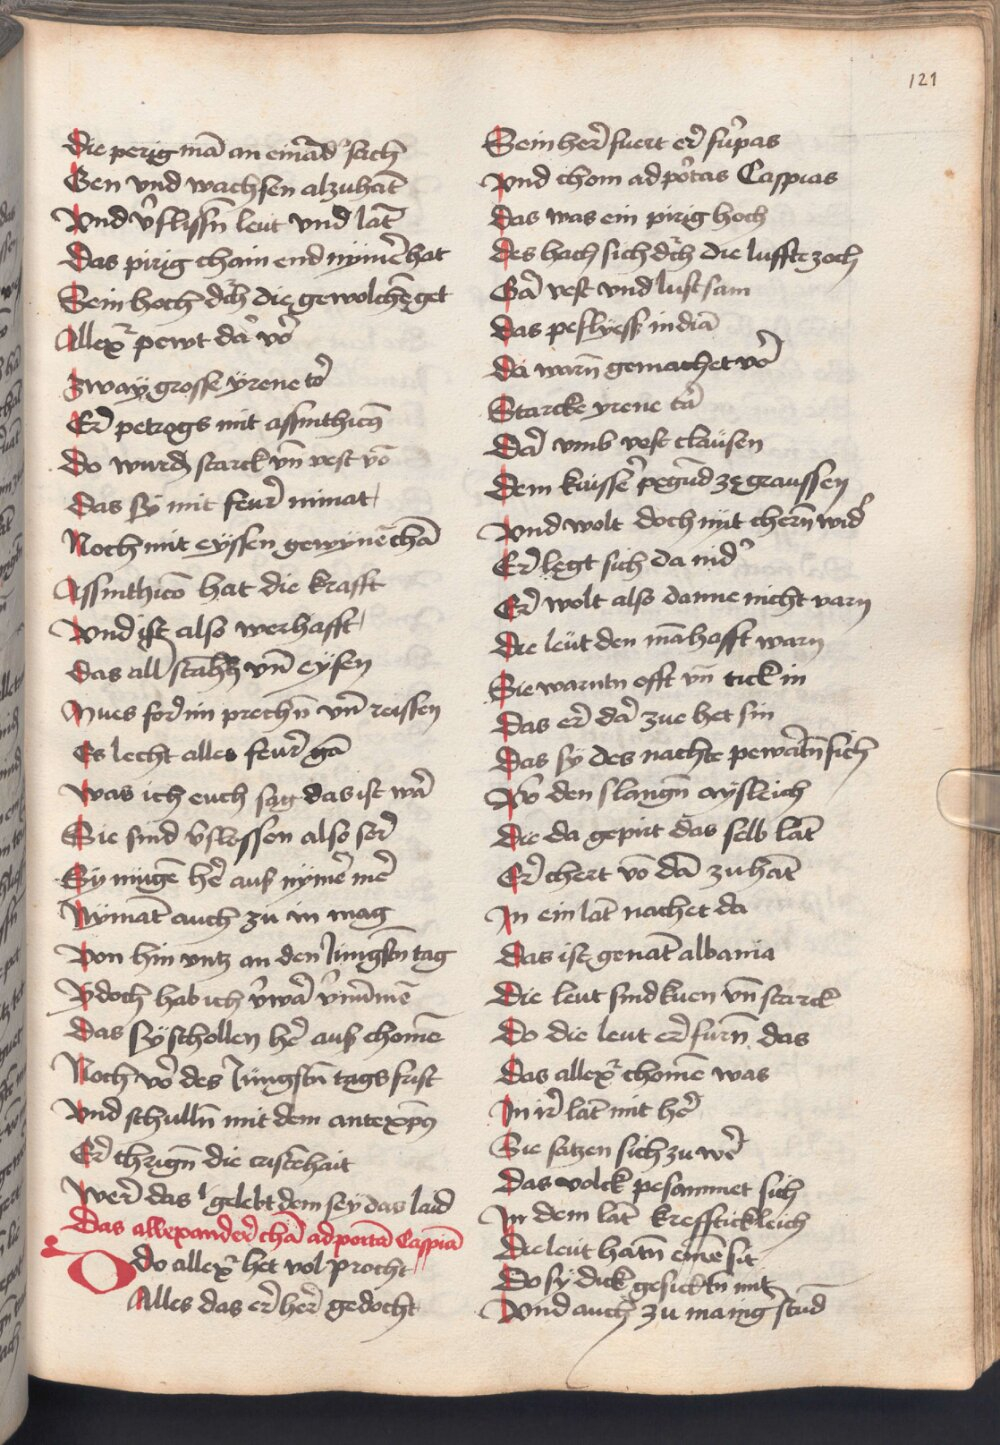 121
Die perig mā an einād̾ sach
Gen vnd wachsen alzuhāt
Vnd v̾slissn̄ leut vnd lāt
Das pirig chain end nÿmē hat
Sein hoch dͨh die gewolchē get
Allex̾ pewt da vo̾
Zway grosse ÿrene to̾
Er̾ petrogs mit assinthicō
Do wurdn̄ starck vn̄ vest vō
Das sy mit feur̾ nimāt
Noch mit eÿssen gewÿnē chā
Assinthicō hat die krafft
Vnd ist also werhafft
Das all stahl vn̄ eÿsen
Mues for̾ im prechn̄ vn̄ reissen
Es lecht alles feur̾ gā
Was ich euch sag das ist wa̾
Sie sind v̾slossen also ser̾
Sy mügē he̾ aus nÿmē me̾
Nÿmāt auch zu in mag
Von hin vntz an den Jungstn̄ tag
Ydoch hab ich v̾wa̾ v̾nūmē
Das sy schollen he̾ aus chomē
Noch vo̾ des Jungstn̄ tags frist
Vnd schulln̄ mit dem antexp̄o
Er̾ chrign̄ die cristēhait
Wer̾ das gelebt dem sey das laid
Das allexander̾ chā ad portā Caspiā
Do allex̾ het vol procht
Alles das er̾ her̾ gedocht
Sein her̾ fuert er̾ fu̾pas
Vnd chom ad po̾tas Caspias
Das was ein pirig hoch
Des hach sich dͨh die luffte zoch
Ga̾ vest vnd lustsam
Das peslyess indiā
Da warn̄ gemachet vo̾
Starcke yrene ta̾
Da̾ vmb vest clausen
Dem kaisse̾ pegūd ze graussen
Vnd wolt doch nÿt chern̄ wid̾
Er̾ legt sich da nid̾
Er̾ wolt also danne nicht varn
Die leüt den māhafft warn
Sie warntn offt vn̄ tick in
Das er̾ da̾ zue het sin
Das sy des nachts pewa̾tn̄ sich
Vo̾ den slangn̄ aysleich
Die da gepirt das selb lāt
Er̾ chert vō dā zuhāt
In ein lāt nachet da
Das ist genāt albania
Die leut sind kuen vn̄ starck
Do die leut er̾furn̄ das
Das allex̾ chomē was
In ir̾ lāt mit he̾
Sie satzen sich zu we̾
Das volck pesammet sich
In dem lāt krefftickleich
Die leut hatn̄ einē sit
Do sy dick gesicktn̄ mit
Vnd auch zu manig̾ stūd